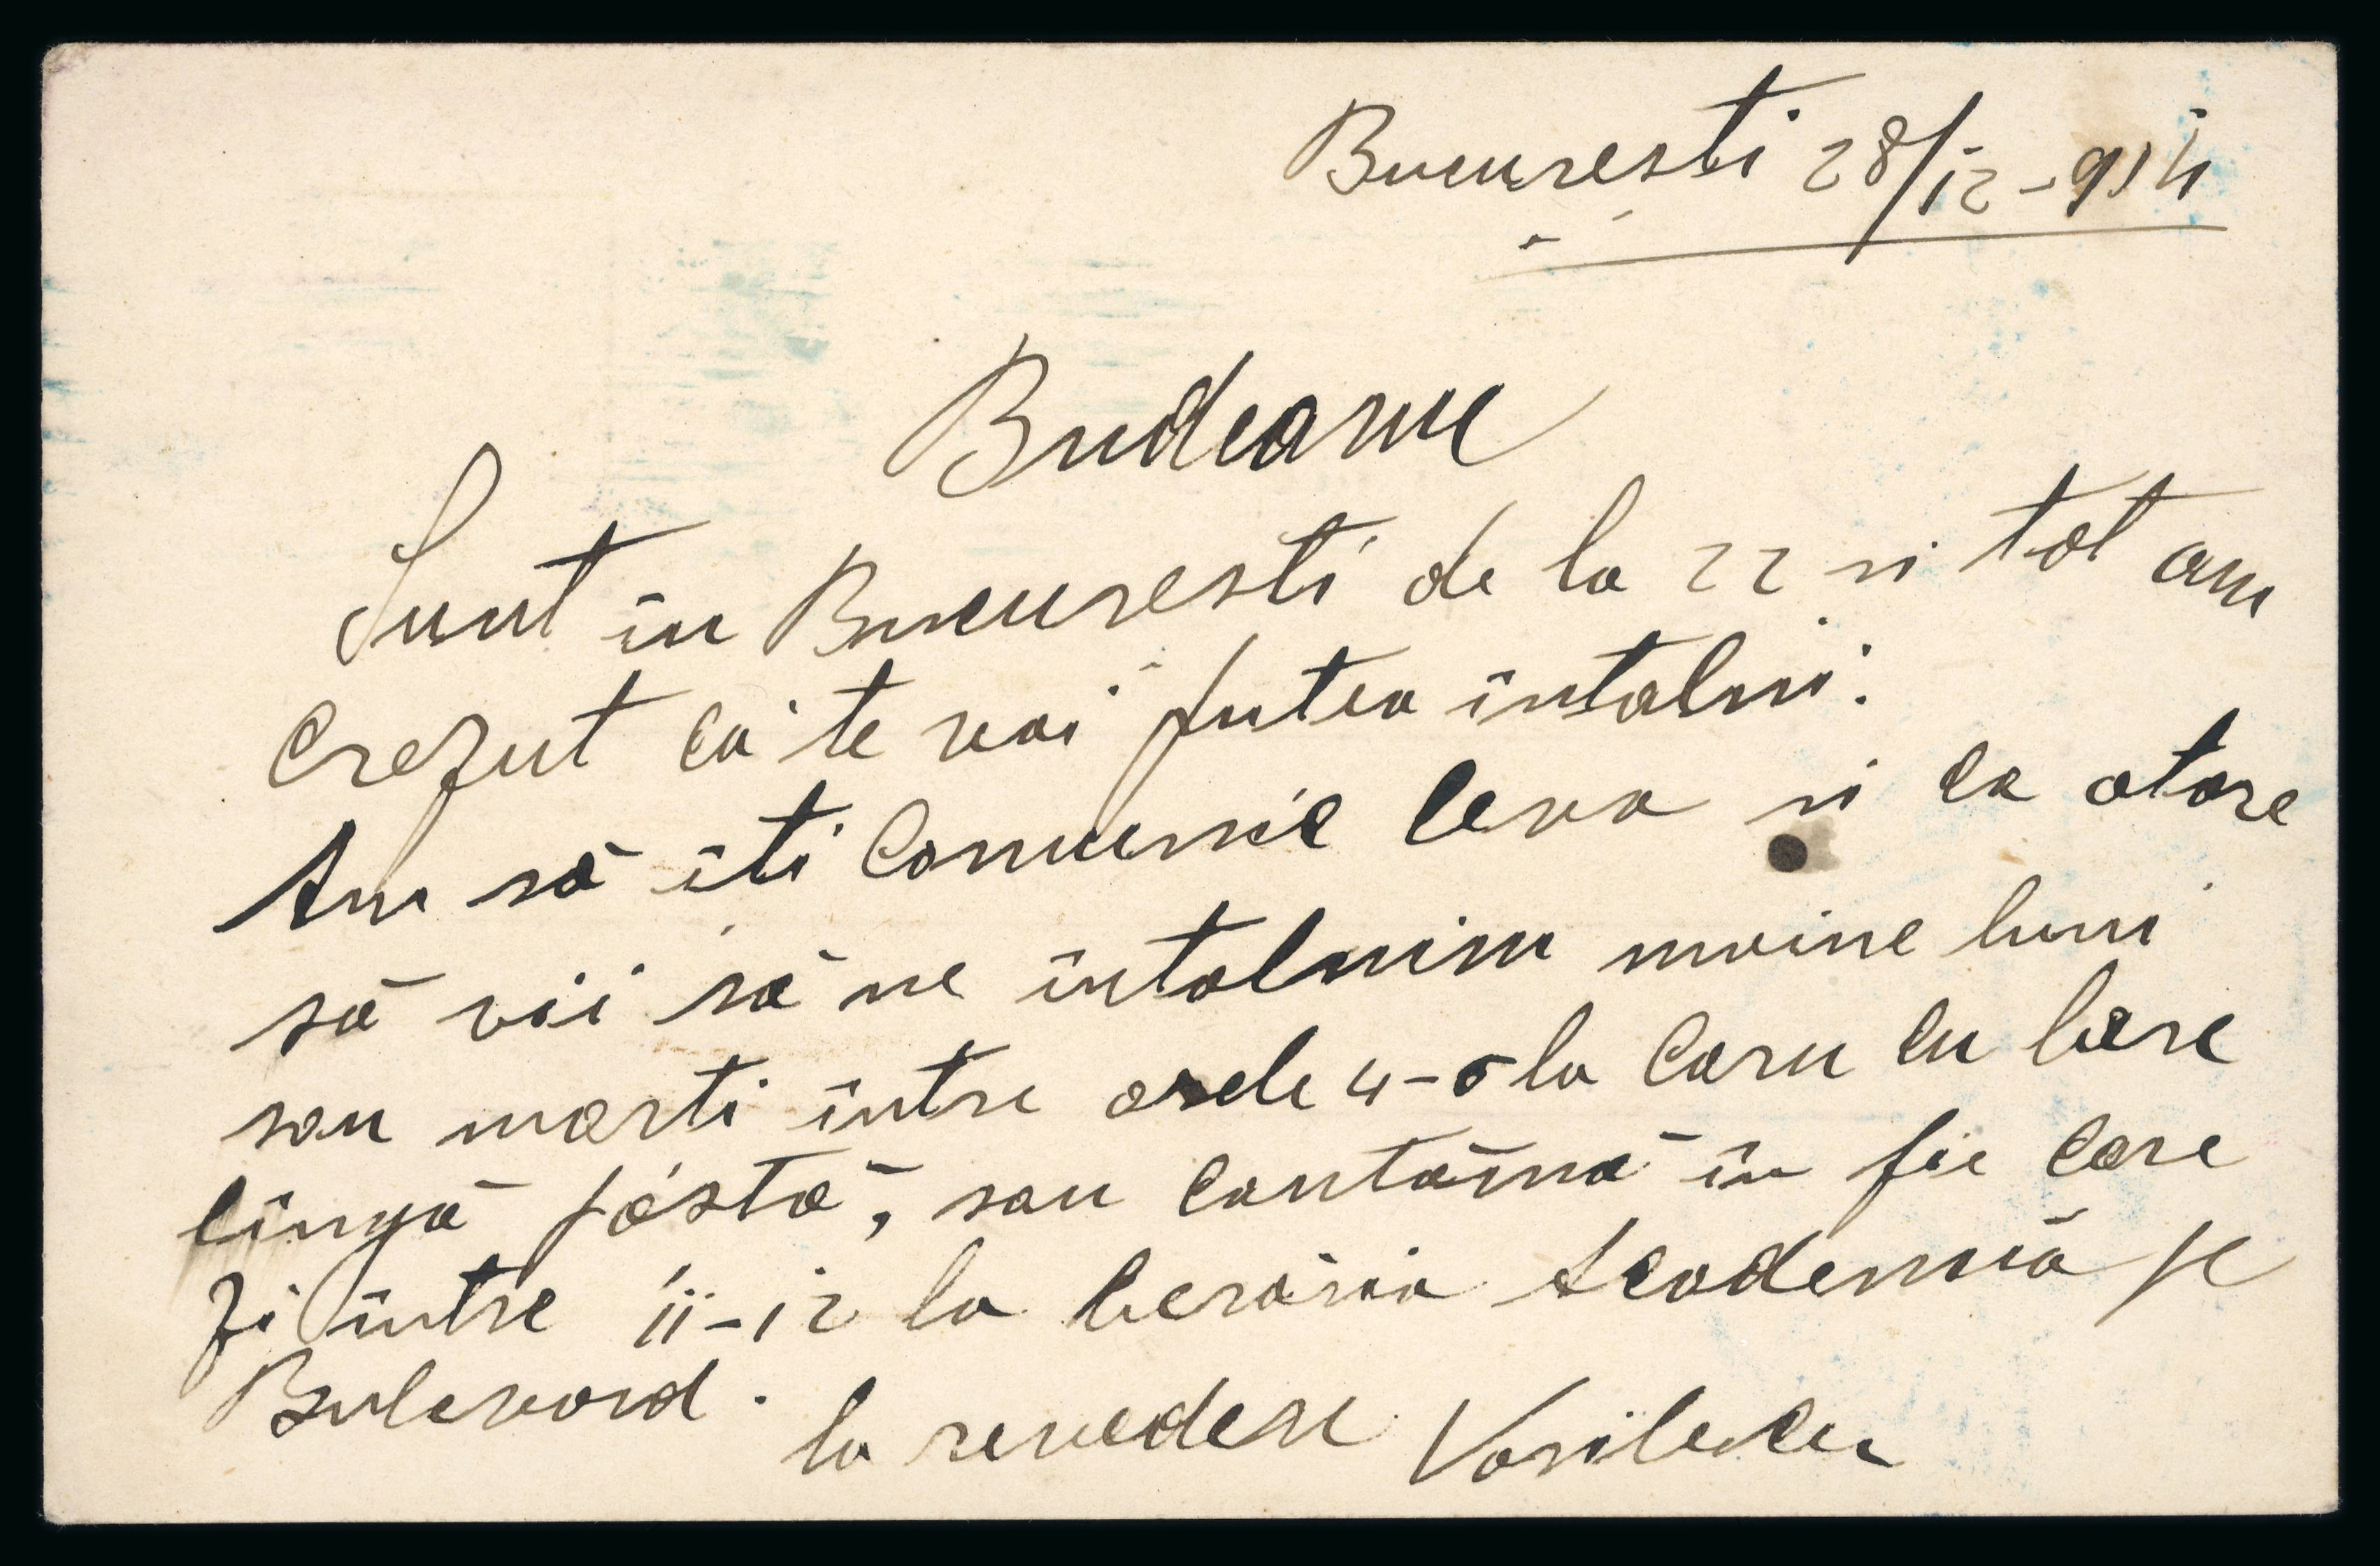 Bucuresti 28/12-914
Budeanu
Sunt în Bucuresti de la 22 si tot am
Crezut că te voi putea intalni.
Am să iti Comunic Ceva si ca atare
să vii să ne întalnim maine luni
sau marti între orele 4-5 la Caru cu bere
lîngă póstă, sau cautămă în fie care
zi între 11-12 la berăria Academiă pe
Bulevard. la revedere Vasilescu